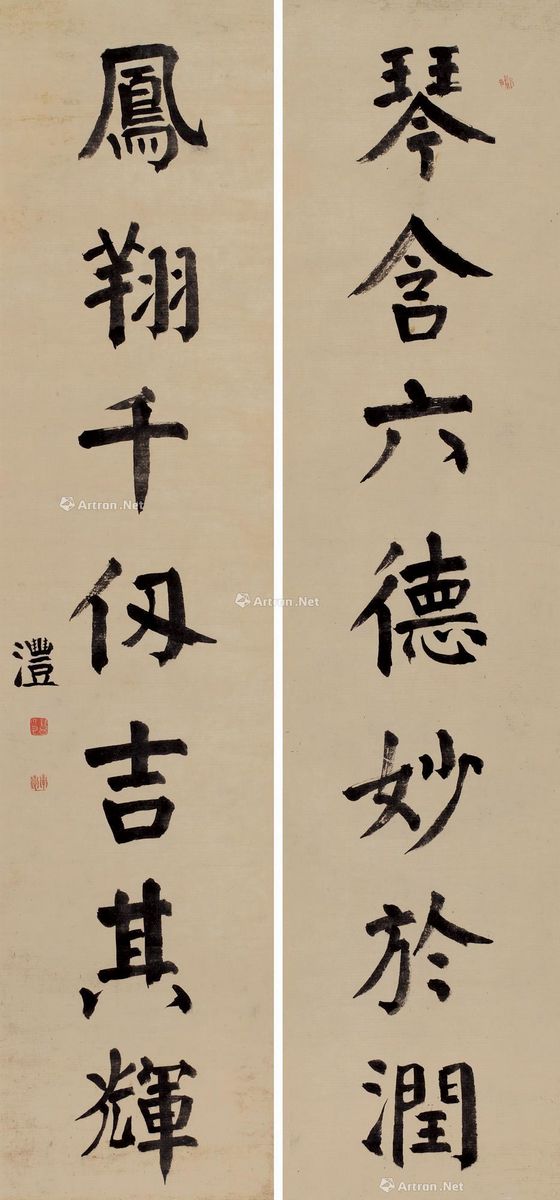 琴含六德妙於潤
鳳翔千仞吉其輝
澧
Artron.Net
Artron.Net
Artron.Net